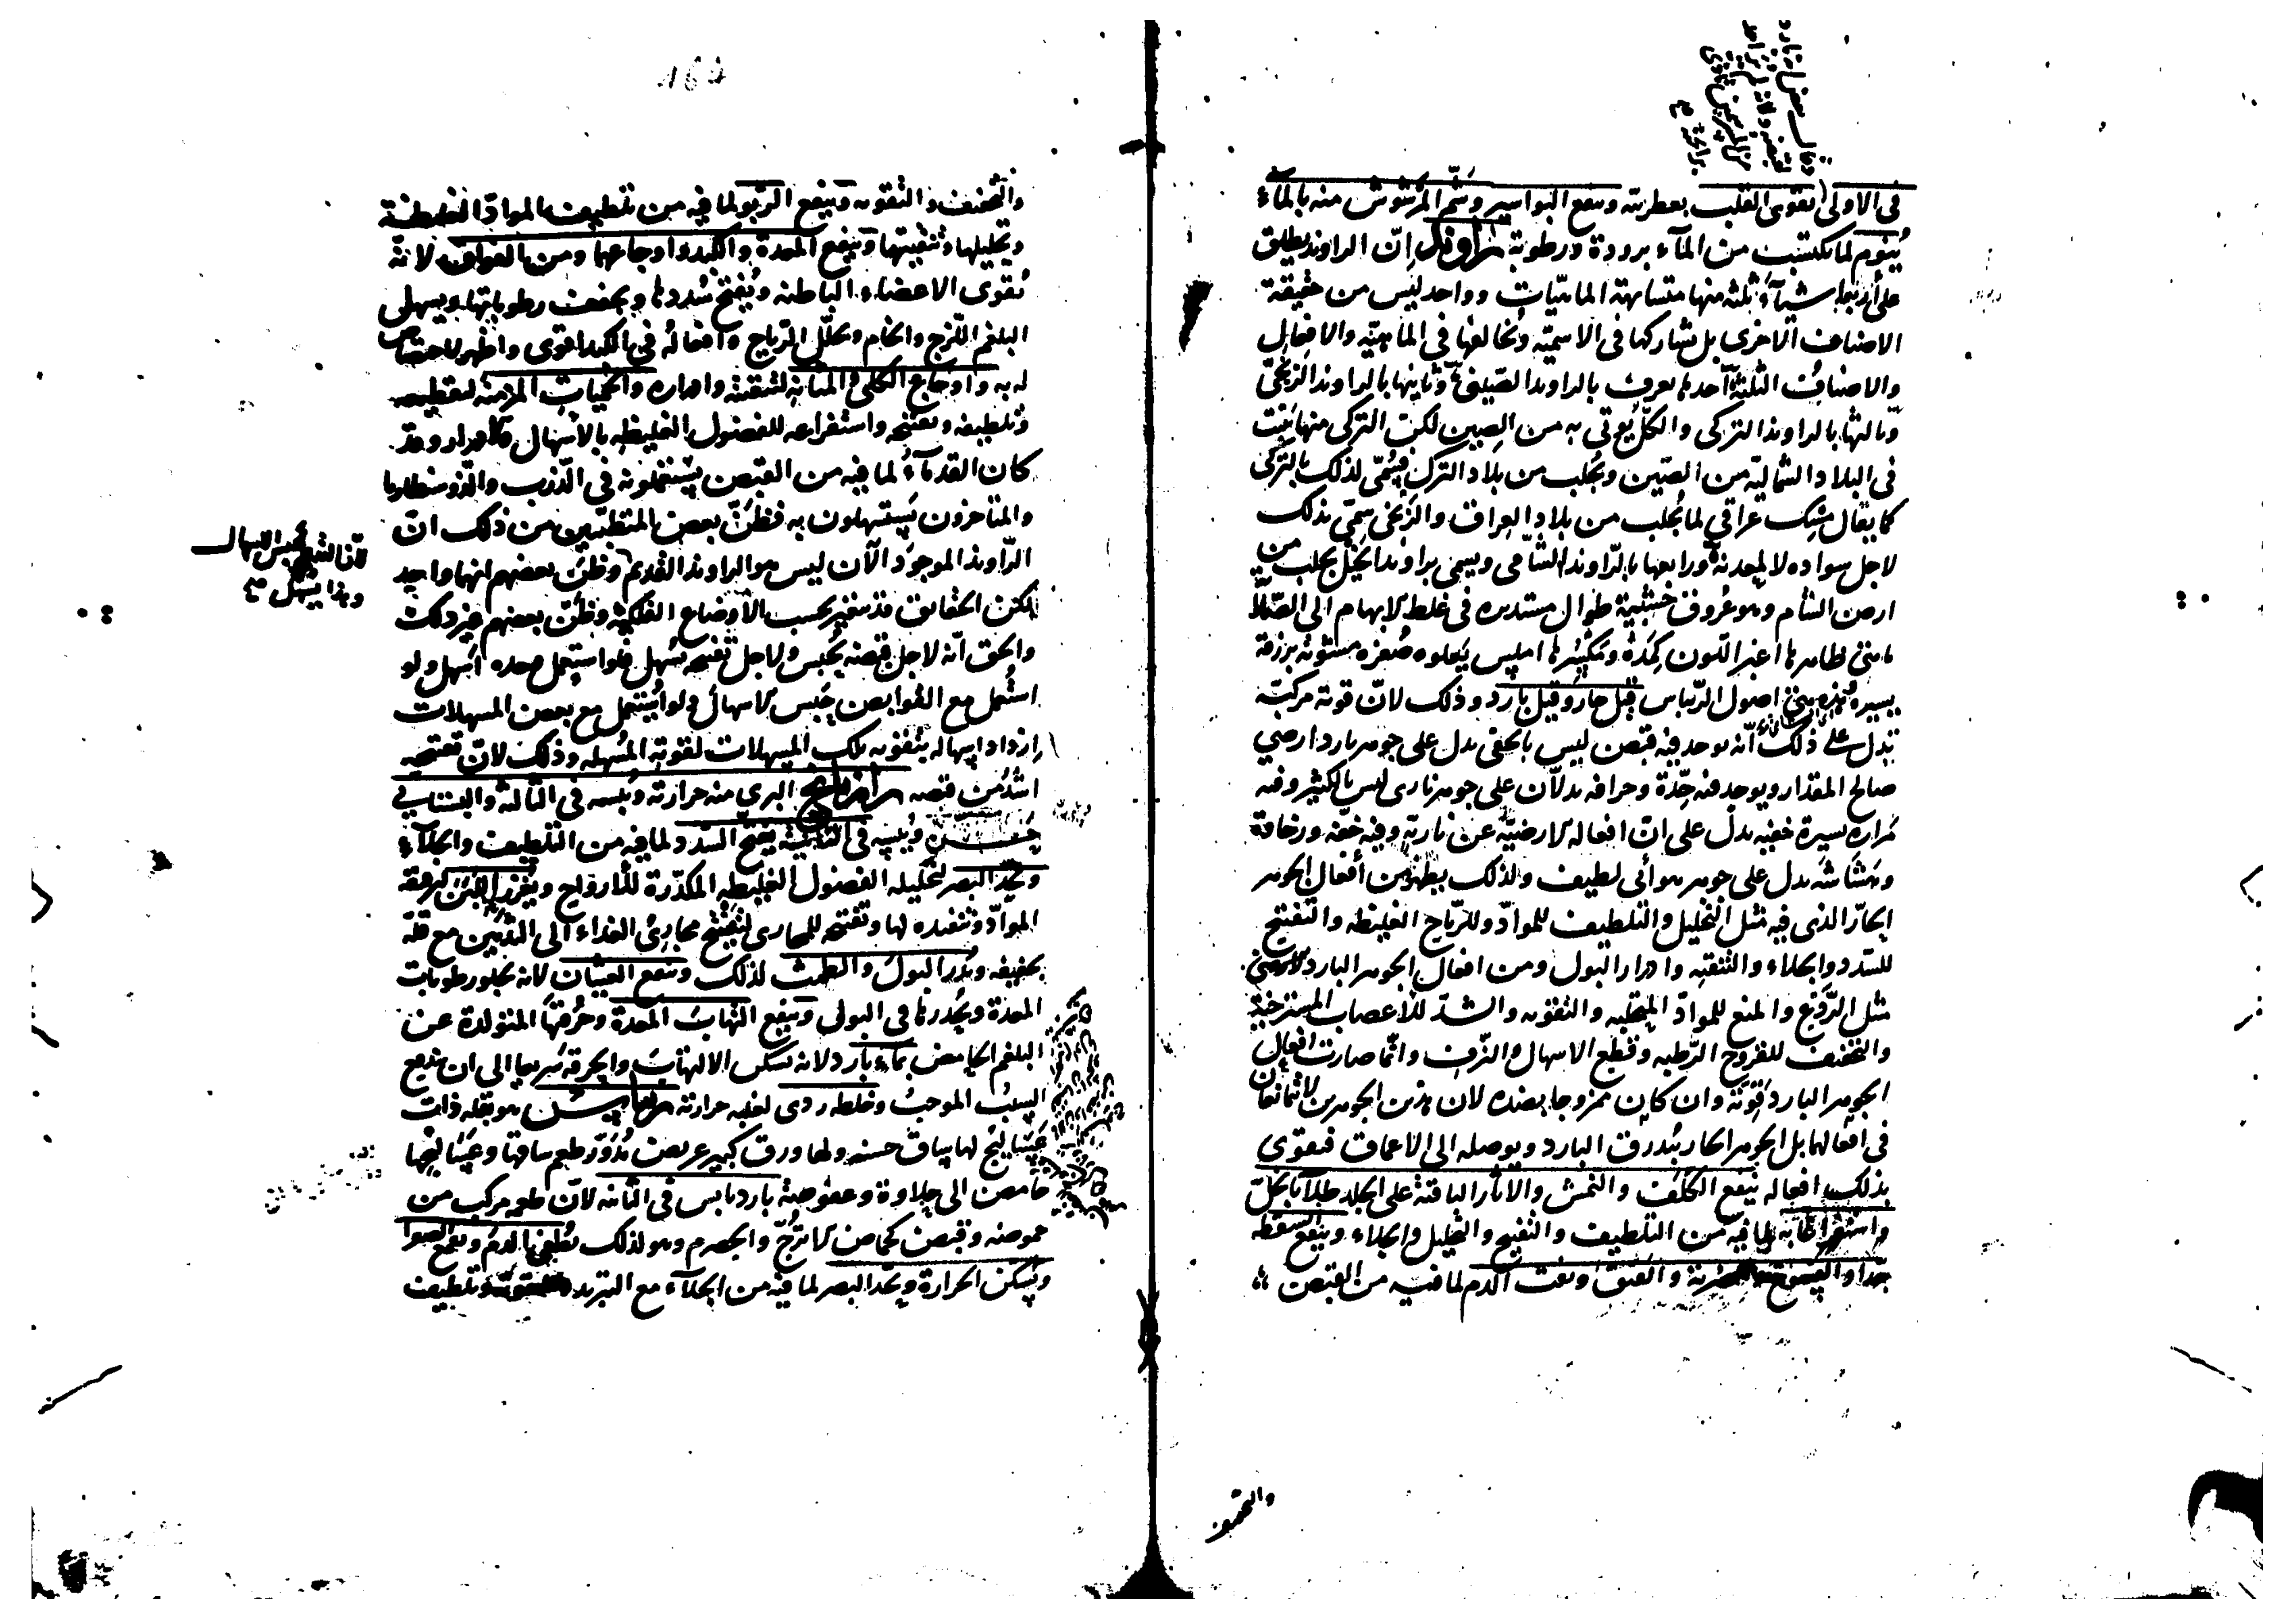 في الاولى يقوى القلب بعطريته وينفع البواسير وشمّ المرشوش منه بالماء
يُنوّم لما يكتسب من المآء برودة ورطوبة راوند إنّ الراوند يطلق
على أربعة اشيآء ثلثة منها متشابهة الماهيّات وواحد ليس من حقيقة
الاصناف الاخرى بل يشاركها في الاسميّة ويُخالفها في الماهيّة والافعال
والاصناف الثلثة احدها يعرف بالراوند الصّينى وثانيها بالراوند الزنجيّ
وثالثها بالراوند التركى والكلّ يُوتى به من الصين لكن التركى منها ينبت
في البلاد الشماليّة من الصّين ويُجلب من بلاد الترك فيُسمّى لذلك بالتركى
كما يقال مِسك عراقي لما يُجلب من بلاد العراق والزنجى سمّى بذلك
لاجل سواده لا لمعدنه ورابعها بالرّاوند الشّامى ويسمى براوند الخيل يجلب من
ارض الشام وهو عُروق خشبية طوال مستديره في غلظ الابهام الى الصّلابة
ما هي ظاهرها اغبر اللّون كمدة ومكسرها املس يَعلوه صُفره مشوبة بزرقة
يسيره وهذه هي اصول الرّيباس قيل حار وقيل بارد وذلك لانّ قوته مركبّة
يَدل على ذلك أنّه يوجد فيه قبض ليس بالخفى يدل على جوهر بارد ارضي
صالح المقدار ويوجد فيه حِدّة وحرافه يدلّان على جوهر نارى ليس بالكثير وفيه
مَراره يسيرة خفيّه يدلّ على انّ افعاله الارضيّه عن ناريّه وفيه خفّه ورخاوة
وهَشاشه يدل على جوهر هوائى لطيف ولذلك يظهر من أفعال الجوهر
الحارّ الذى فيه مثل التحليل والتلطيف للموادّ وللرّياح الغليظه والتفتيح
للسّدد والجلاء والتنقيه وادرار البول ومن افعال الجوهر البارد الارضى
مثل الرّدع والمنع للموادّ المتحلّبه والتقويه والشدّ للاعصاب المسترخية
والتجفيف للقروح الرّطبه وقطع الاسهال والنزف وانّما صارت افعال
الجوهر البارد قويّة وان كان ممزوجا بضدّه لان هذين الجوهرين لا يتمانعان
في افعالهما بل الجوهر الحار يُبدرق البارد ويوصله الى الاعماق فيقوى
بذلك افعاله ينفع الكلَف والنمش والاثار الباقية على الجلد طِلآء بالخلّ
لما فيه من التلطيف والتفتيح والتحليل والجلاء وينفع السقطه
جدّا والفسوخ والضربة والفتق ونفث الدم لما فيه من القبض
والتجفيف
والتجفيف والتقويه وينفع الربو لما فيه من تلطيف المواد الغليظة
وتحليلها وتنقيتها وينفع المعدة والكبد واوجاعهما ومن الفواق لانّه
يُقوى الاعضاء الباطنه ويُفتح سُددها ويجفف رطوباتها ويسهل
البلغم اللّزج والخام ويحلّل الرّياح وافعاله في الكبد اقوى واظهر لاختصاص
له به واوجاع الكلى والمثانة لتنقيته وادراره والحُمّيات المزمنه لتقطيعه
وتلطيفه وتفتيحه واستفراغه للفضول الغليظه بالاسهال والادرار وقد
كان القدمآء لما فيه من القبض يستعملونه في الذّرب والذوسنطاريا
والمتاخرون يَستسهلون به فظنّ بعض المتطبّبين من ذلك انّ
الرّاوند الموجود الآن ليس هو الراوند القديم وظنّ بعضهم انهما واحد
لكن الحقايق قد يتغير بحسب الأوضاع الفلكيّة وظنّ بعضهم غير ذلك
والحق انّه لاجل قبضه يُحبس ولاجل تفتيحه يُسهل فلو استعمل وحده اسهل ولو
استُعمل مع القوابض حَبس الاسهال ولو استُعمل مع بعض المسهلات
ازداد اسهاله بتقويه تلك المسهلات لقوته المُسهله وذلك لانّ تفتيحه
اشدّ من قبضه رازيانج البرى منه حرارته ويُبسه في الثالثة والبستاني
ويُبسه في الثانية يفتح السّدد لما فيه من التلطيف والجلآء
ويحدّ البصر لتحليله الفضول الغليظه المكدّرة للارواح ويُغزر اللّبَن لترقيقه
الموادّ وتنفيذه لها وتفتيحه للمجارى ليُفتح مجارىَ الغذاء الى الثديين مع قلّة
تجفيفه ويُدر البولَ والطمث لذلك وينفع الغثيان لانه يجلو رطوبات
المعدة ويُحدرها في البول وينفع التهابَ المعدة وحُرقتَها المتولدة عن
البلغم الحامض بمآءٍ بارد لانه يسكن الالتهابَ والحرقه سَريعا الى ان يندفع
السببُ الموجبُ وخلطه ردى لغلبه حرارته ريباس هو بقله ذات
عَساليج لها ساق حسنه ولها ورق كبير عريض مُدَوّر طعم ساقها وعَساليجها
حامض الى حلاوة وعفوصة بارد يابس في الثانيه لانّ طعمه مركب من
حموضه وقبض كحُماض الاترُجّ والحصرم وهو لذلك يُطفئ الدّم ويقمع الصفرا
ويُسكن الحرارة ويحدّ البصر لما فيه من الجلآء مع التبريد وتلطيف
لانّ القديم يحبس الاسهال
وهذا يسهل